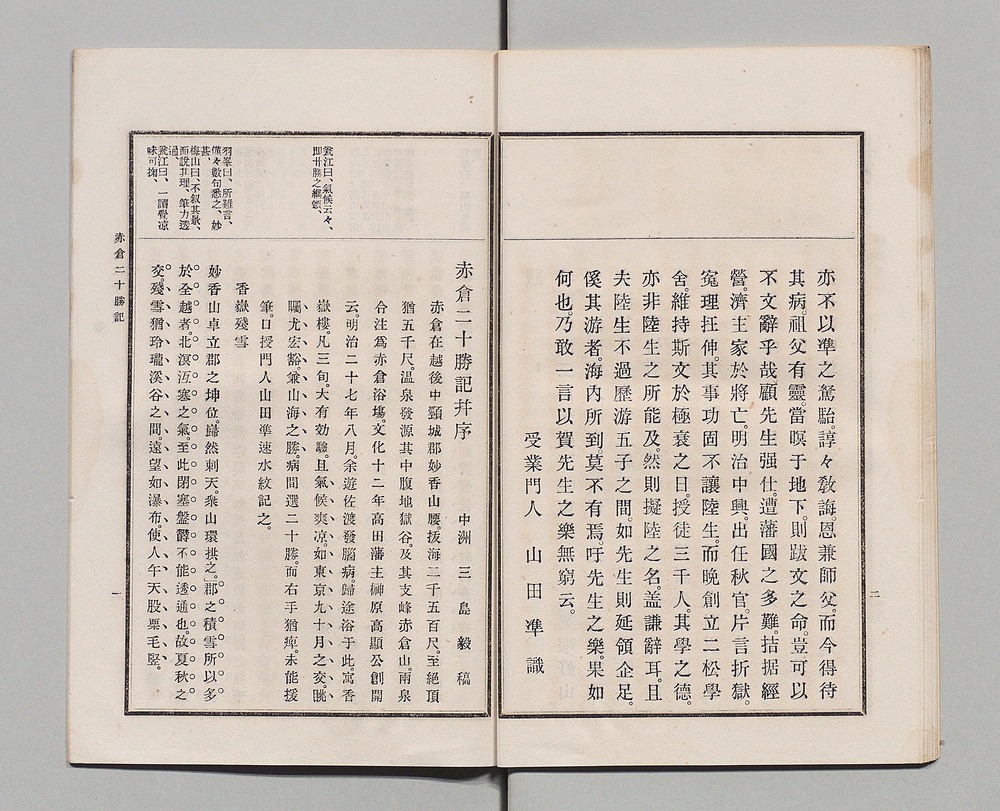 亦不以準之駑駘。諄々敎誨恩兼師父。而今得待
其病。祖父有靈。當暝于地下。則跋文之命。豈可以
不文辭乎哉顧先生强仕。遭藩國之多難。拮据經
營。濟主家於將亡。明治中興。出任秋官。片言折獄。
寃理抂伸。其事功固不讓陸生。而晩創立二松學
舍。維持斯文於極衰之日。授徒三千人。其學之德。
亦非陸生之所能及。然則擬陸之名。盖謙辭耳。且
夫陸生不過歷游五子之間。如先生則延領企足。
傒其游者。海内所到莫不有焉。吁先生之樂。果如
何也。乃敢一言以賀先生之樂無窮云。
受業門人 山田準識
二
赤倉二十勝記幷序
中洲 三島毅稿
赤倉在越後中頸城郡妙香山腰。拔海二千五百尺。至絶頂
猶五千尺。温泉發源其中腹地獄谷。及其支峰赤倉山。兩泉
合注爲赤倉浴塲。文化十二年高田藩主榊原高顯公創開
云。明治二十七年八月。余遊佐渡發腦病。歸途浴于此。寓香
嶽樓。凡三旬。大有効驗。且氣候爽凉。如東京九十月之交。眺
矚尤宏豁。兼山海之勝。病間選二十勝。而右手猶痺。未能援
筆。口授門人山田準速水紋記之。
香嶽殘雪
妙香山卓立郡之坤位。巋然刺天。衆山環拱之。郡之積雪所以多
於全越者。北溟沍寒之氣。至此閉塞盤欝不能透通也。故夏秋之
交。殘雪猶玲瓏溪谷之間。遠望如瀑布。使人午天股栗毛竪。
裳江曰、氣候云々、
即廿勝之綱領、
羽峯曰、所難言、
僅々數句悉之、妙
甚、
梅山曰、不叙其景、
而說其理、筆力透
過、
裳江曰、一讀覺凉
味可掬、
赤倉二十勝記
一